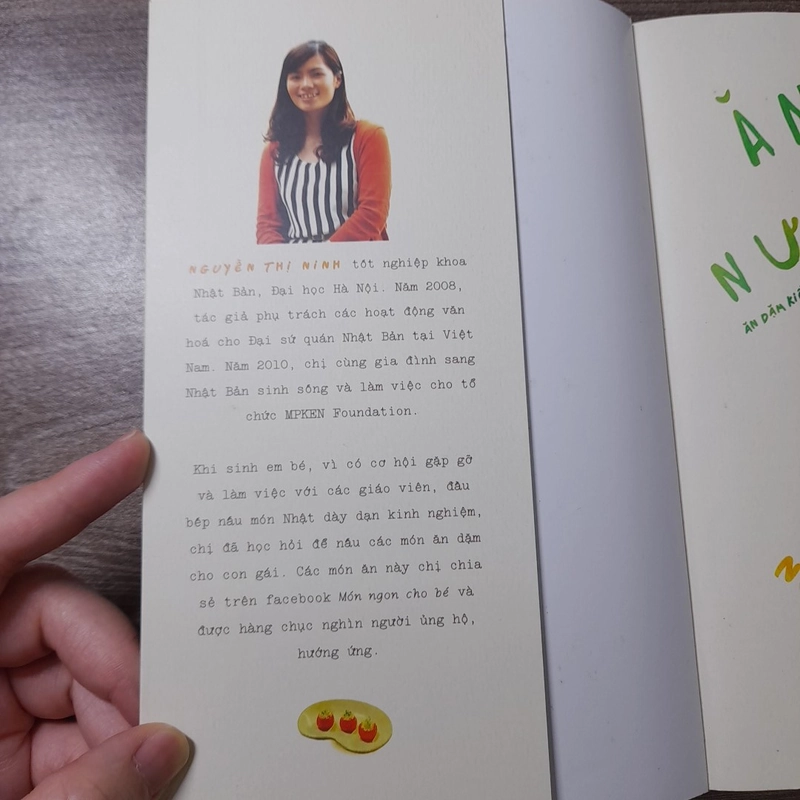 NGUYỄN THỊ NINH tốt nghiệp khoa
Nhật Bản, Đại học Hà Nội. Năm 2008,
tác giả phụ trách các hoạt động văn
hoá cho Đại sứ quán Nhật Bản tại Việt
Nam. Năm 2010, chị cùng gia đình sang
Nhật Bản sinh sống và làm việc cho tổ
chức MPKEN Foundation.
Khi sinh em bé, vì có cơ hội gặp gỡ
và làm việc với các giáo viên, đầu
bếp nấu món Nhật dày dạn kinh nghiệm,
chị đã học hỏi để nấu các món ăn dặm
cho con gái. Các món ăn này chị chia
sẻ trên facebook Món ngon cho bé và
được hàng chục nghìn người ủng hộ,
hưởng ứng.
ĂN
NƯ
ĂN DẶM KIỂ